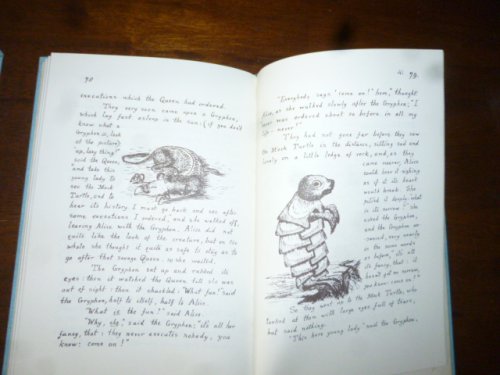 90
executions which the Queen had ordered.
They very soon came upon a Gryphon,
which lay fast asleep in the sun: (if you don't
know what a
Gryphon is, look
at the picture):
"up, lazy thing!"
said the Queen,
"and take this
young lady to
see the Mock
Turtle, and to
hear its history. I must go back and see after
some executions I ordered, and she walked off,
leaving Alice with the Gryphon. Alice did not
quite like the look of the creature, but on the
whole she thought it quite as safe to stay as to
go after that savage Queen: so she waited.
The Gryphon sat up and rubbed its
eyes: then it watched the Queen till she was
out of sight: then it chuckled: "What fun!" said
the Gryphon, half to itself, half to Alice.
"What is the fun?" said Alice.
"Why, she," said the Gryphon; "it's all her
fancy, that: they never executes nobody, you
know: come on!"
"Everybody says 'come on!' here," thought
Alice, as she walked slowly after the Gryphon; "I
never was ordered about so before in all my
life: never!"
They had not gone far before they saw
the Mock Turtle in the distance, sitting sad and
lonely on a little ledge of rock, and, as they
came nearer, Alice
could hear it sighing
as if its heart
would break. She
pitied it deeply: "what
is its sorrow?" she
asked the Gryphon,
and the Gryphon
answered, very nearly
in the same words
as before, "it's all
its fancy, that: it
hasn't got no sorrow,
you know: come on!"
So they went up to the Mock Turtle, who
looked at them with large eyes full of tears,
but said nothing.
"This here young lady" said the Gryphon,